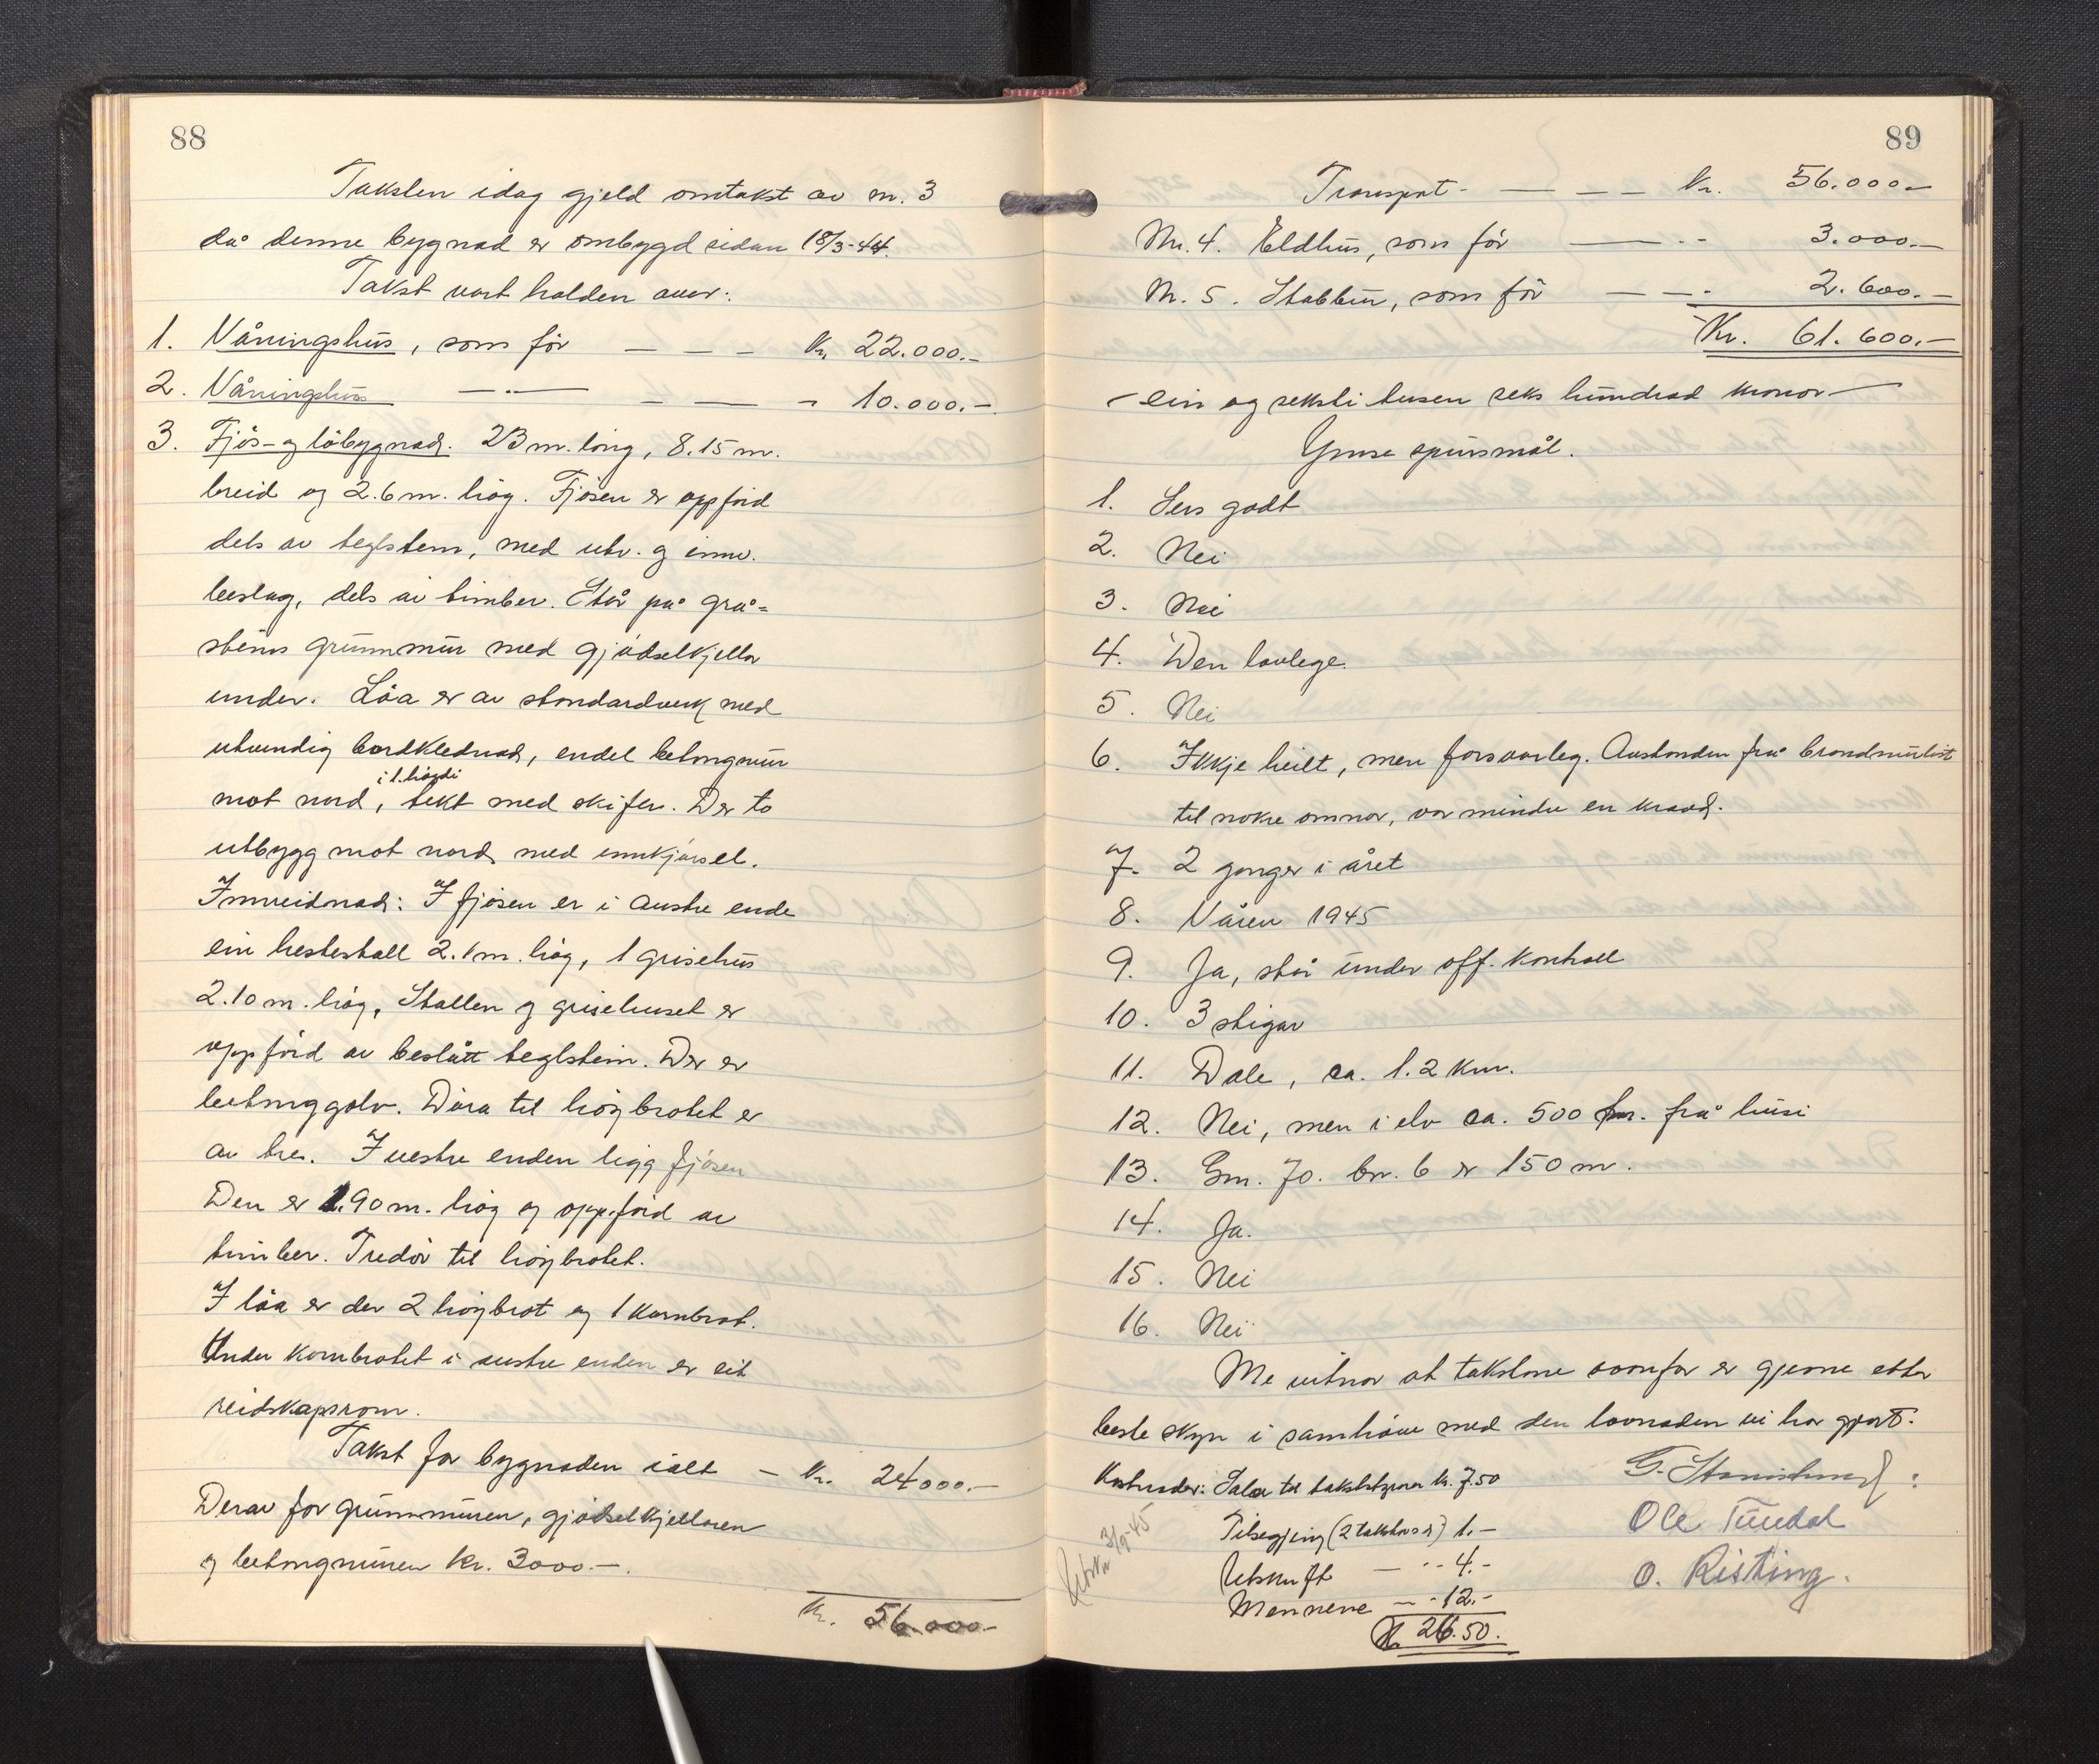 88
Taksten idag gjeld omtakst av nr. 3
då denne bygnad er ombygd sidan 18/3-44.
Takst vart halden over:
1. Våningshus, som för — — — Kr. 22.000.-
2. Våningshus —·— — — - 10.000.-
3. Fjös- og löbygnad. 23 m. long, 8.15 m.
breid og 2.6 m. hög. Fjösen er oppförd
dels av teglstein, med utv. og innv.
beslag, dels av timber. Står på grå=
steins grunnmur med gjödselkjellar
under. Löa er av standardverk med
utvendig bordklednad, endel betongmur
i 1. högdi
mot nord, tekt med skifer. Der to
utbygg mot nord med innkjörsel.
Innreidnad: I fjösen er i austre ende
ein hestestall 2.1 m. hög, 1 grisehus
2.10 m. hög, Stallen og grisehuset er
oppförd av beslått teglstein. Der er
betonggolv. Döra til höybrotet er
av tre. I vestre enden ligg fjösen
Den er 1.90 m. hög og oppförd av
timber. Tredör til höybrotet.
I löa er der 2 höybrot og 1 kornbrot.
Under kornbrotet i austre enden er eit
reidskapsrom.
Takst for bygnaden ialt — Kr. 24000.—
Derav for grunnmuren, gjödselkjellaren
og betongmuren Kr. 3000.—.
Kr. 56.000.-
89
Transport - — — — Kr. 56.000.-
Nr. 4. Eldhus, som för — - - 3.000.-
Nr. 5. Stabbur, som för — — - 2.600.-
Kr. 61.600.-
- ein og seksti tusen seks hundrad kronor -
Ymse spursmål.
1. Sers godt
2. Nei
3. Nei
4. Den lovlege.
5. Nei
6. Ikkje heilt, men forsvarleg. Avstanden frå brandmurlist
til nokre omnar, var mindre en kravd.
7. 2 gonger i året
8. Våren 1945
9. Ja, står under off. kontroll
10. 3 stigar
11. Dale, ca. 1.2 km.
12. Nei, men i elv ca. 500 m. frå husi
13. Gm. 70. br. 6 er 150 m.
14. Ja.
15. Nei
16. Nei
Me vitnar at takstane ovanfor er gjevne etter
beste skyn i samhöve med den lovnaden vi har gjort.
Kostnader: Salær til takststyrar kr. 7.50
Tilsegjing (2 takstmenn) 1.-
Utskrift — - - 4.-
Mennene — - 12.-
Kr. 26.50.
3/9-45
Ole Tuedal
O. Risting.